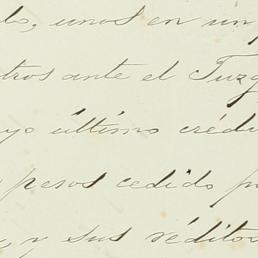 unos en un
ante el Juzg
último crédi
pesos cedido p
, y sus réditos